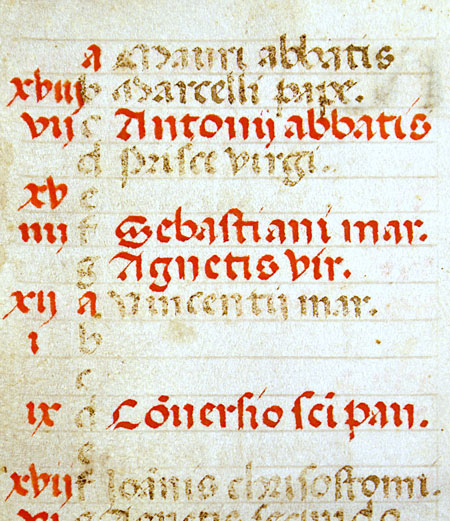 a Mauri abbatis
xviij b Marcelli pape.
vij c Antonij abbatis
d Prisce virgi.
xv e
iiij f Sebastiani mar.
g Agnetis vir.
xij a Vincentij mar.
i b
c
ix d Cōversio sci pau.
e
xvij f Ioānis chrisostomi.
vi g Agnetis secundo